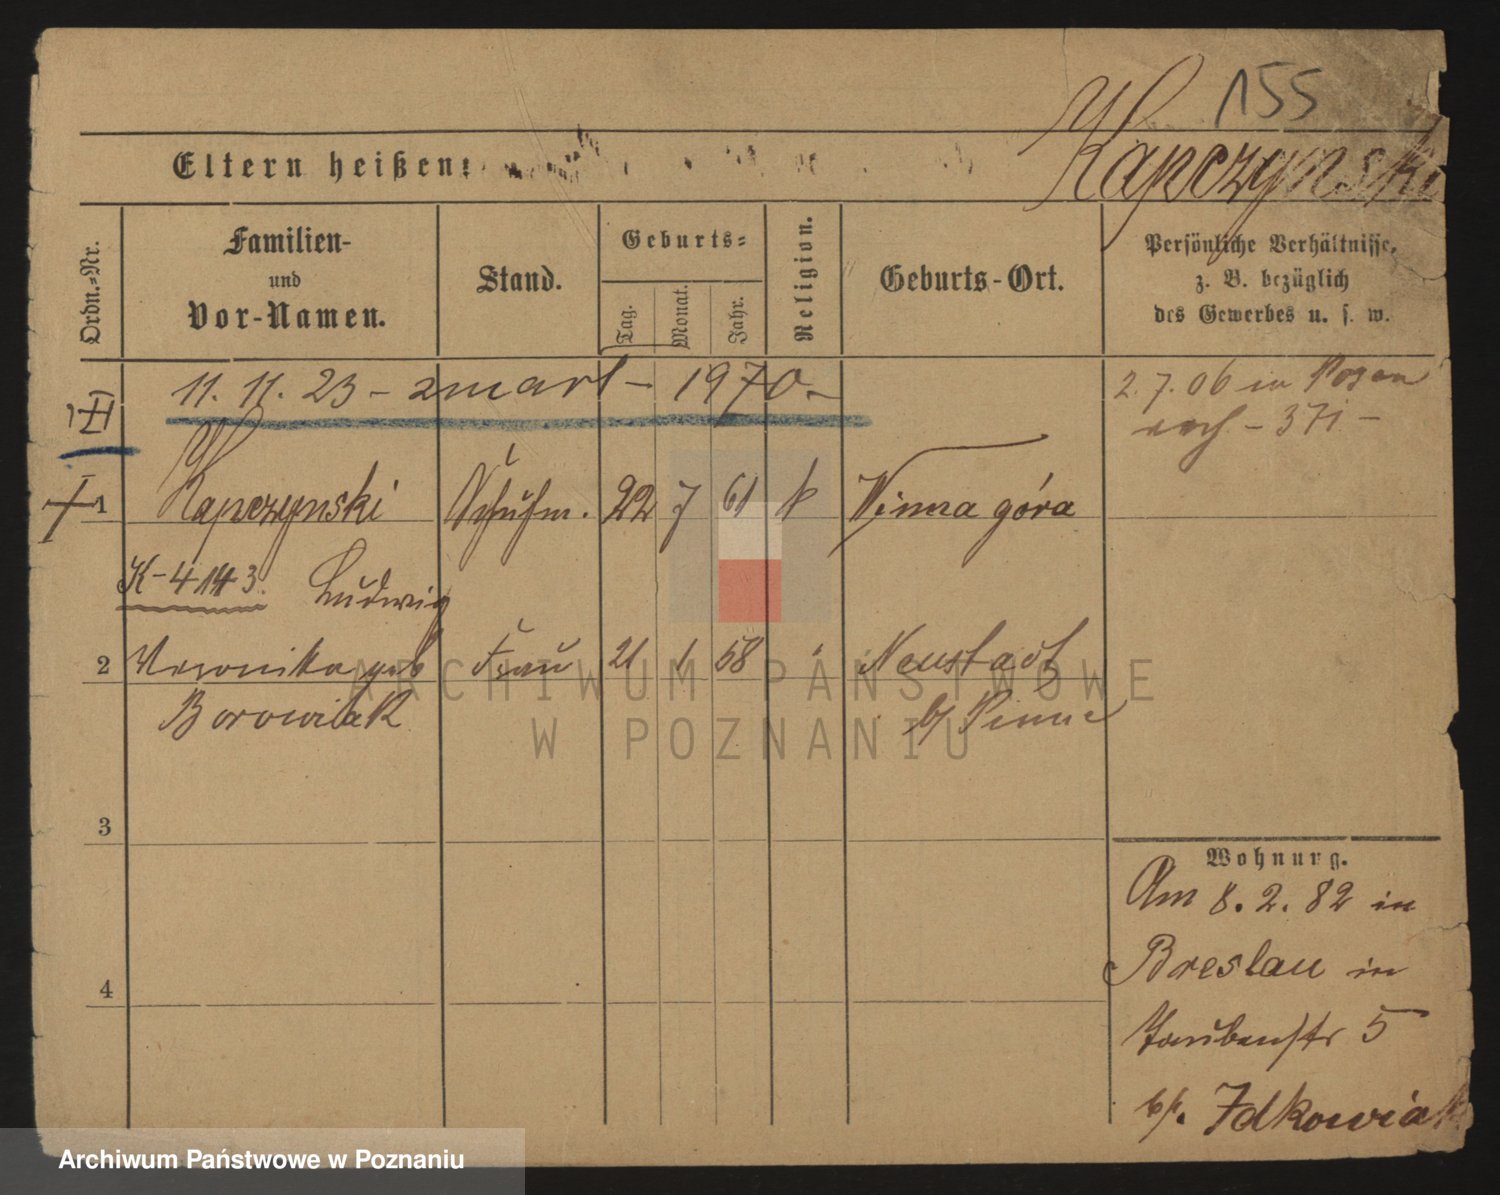 155
Kapczynski
Eltern heißen:
Ordn.-Nr.
Familien-
und
Vor-Namen.
Stand.
Geburts-
Tag.
Monat.
Jahr.
Religion.
Geburts-Ort.
Persönliche Verhältnisse,
z. B. bezüglich
des Gewerbes u. s. w.
11. 11. 23 - zmarł - 1970 -
2. 7. 06 in Posen
- 371 -
1 Kapczynski Schuhm. 22 7 61 k Winna góra
K-4143. Ludwig
2 Veronika geb Frau 21 1 58 Neustadt
Borowiak b/ Pinne
3
4
Wohnung.
Am 8. 2. 82 in
Breslau in
Taubenstr 5
b/. Idkowiak
ARCHIWUM PAŃSTWOWE
W POZNANIU
Archiwum Państwowe w Poznaniu